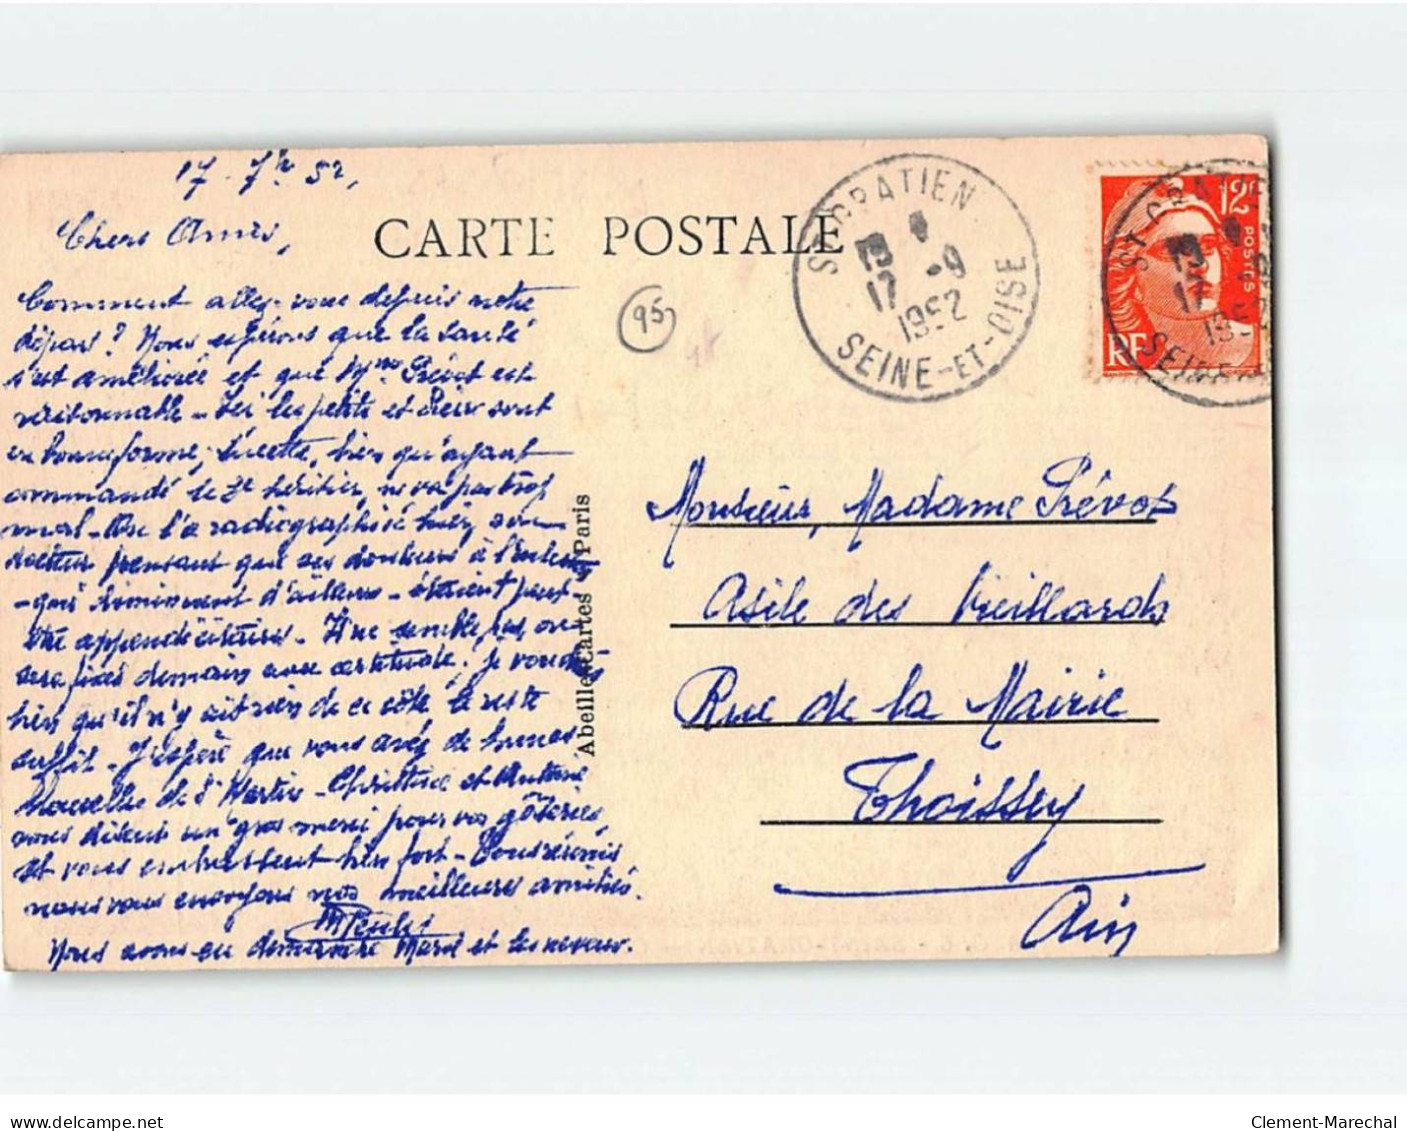 17 - 7bre 52,
Chers Amis,
CARTE POSTALE
Comment allez-vous depuis notre
départ ? Nous espérons que la santé
s'est améliorée et que Mme Prévot est
raisonnable - Ici les petits et Pierre sont
en bonne forme, Lucette, bien qu'ayant
commandé le 3e héritier, ne va pas trop
mal - On l'a radiographiée hier, son
docteur pensant que ses douleurs à
- qui diminuent d'ailleurs - étaient peut-
être appendiculaires - Il ne semble pas, on
sera fixés demain avec certitude. Je voudrais
bien qu'il n'y ait rien de ce côté, le reste
suffit - J'espère que vous avez de bonnes
nouvelles de St Martin - Christine et Antoine
vous disent un gros merci pour vos gâteries
et vous embrassent bien fort - Tous réunis
nous vous envoyons nos meilleures amitiés.
Nous avons eu dimanche Marcel et les neveux.
95
ST GRATIEN
19
17 -9
1952
SEINE-ET-OISE
12F
POSTES
RF
ST GRATIEN
19
17
1952
SEINE
Abeille Cartes Paris
Monsieur, Madame Prévot
Asile des Vieillards
Rue de la Mairie
Thoissey
Ain
Clement-Marechal
www.delcampe.net